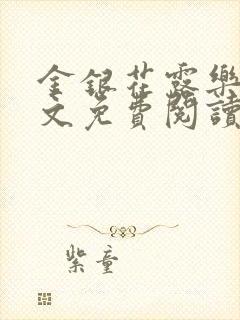 金銀花露樂
文免費閱讀
紫童